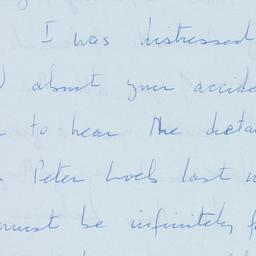 I was distressed
about your accide
to hear the deta
Peter Loeb last
must be infinitely f